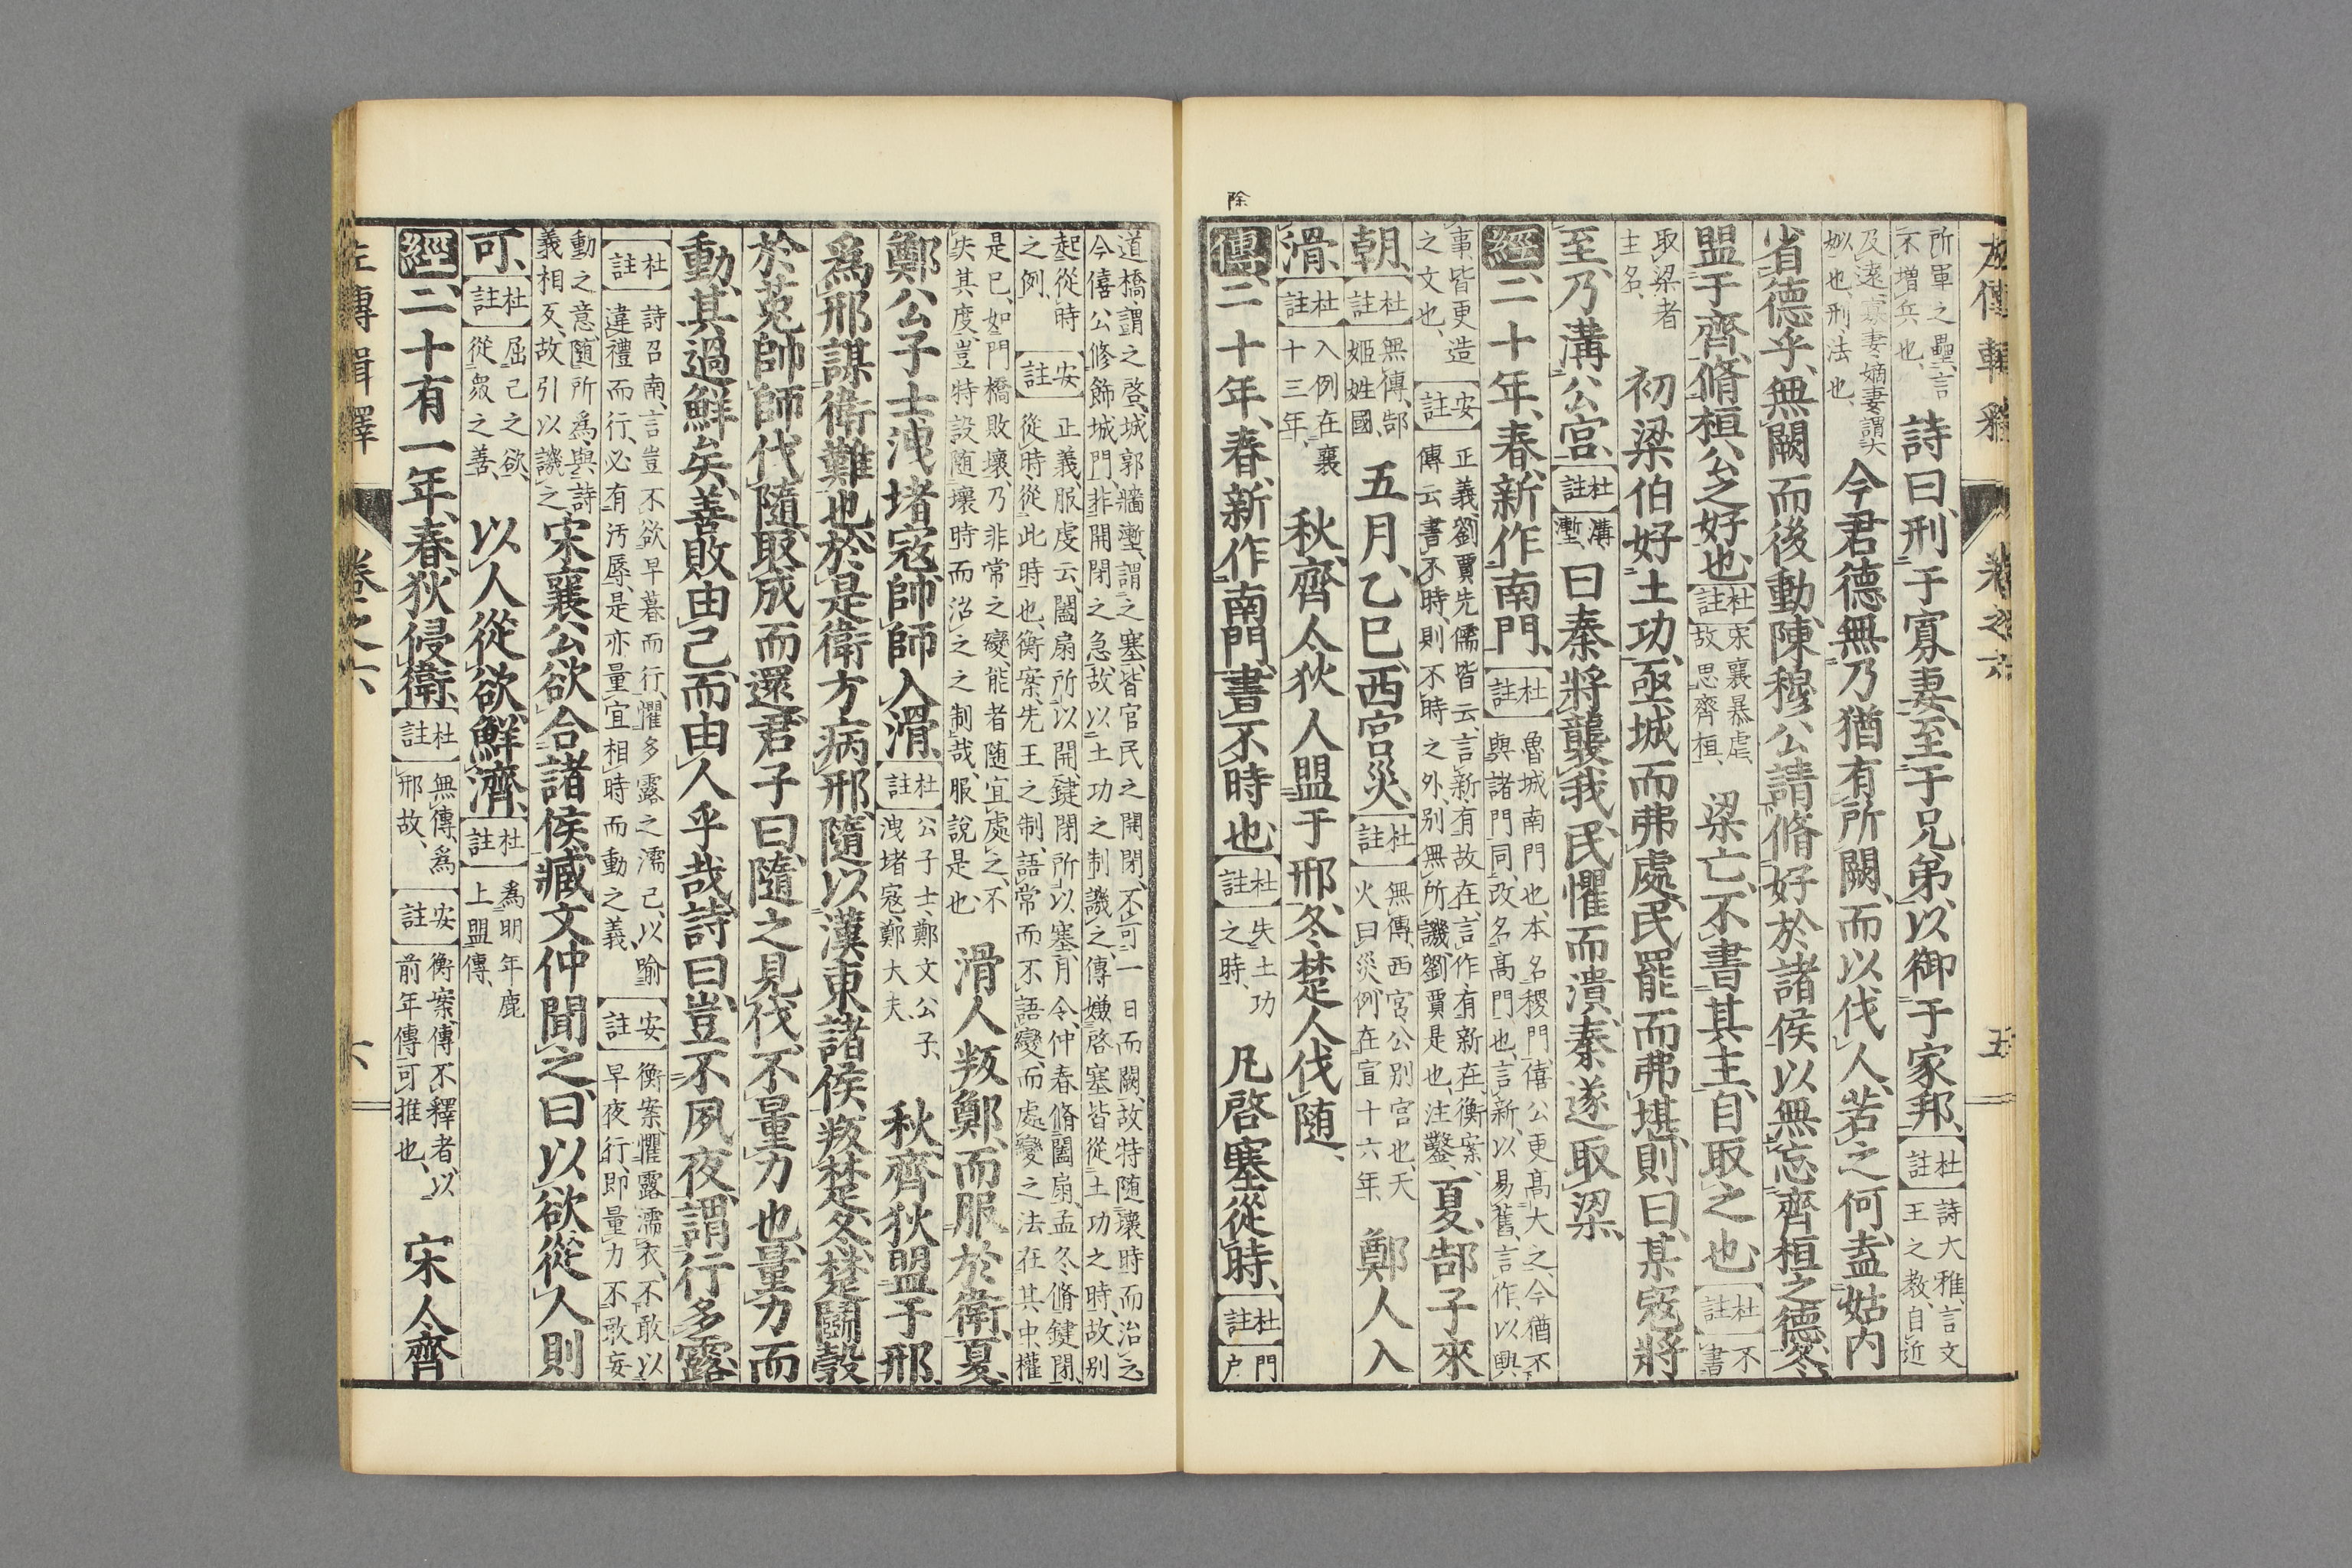 左傳輯釋 卷之六 五
所軍之壘言不增兵也、詩曰、刑于寡妻、至于兄弟、以御于家邦、杜註詩大雅、言文王之教、自近
及遠、寡妻、嫡妻、謂大姒也、刑、法也、今君德無乃猶有所闕、而以伐人、若之何、盍姑内
省德乎、無闕而後動、陳穆公請脩好於諸侯、以無忘齊桓之德、冬、
盟于齊、脩桓公之好也、杜註宋襄暴虐、故思齊桓、梁亡、不書其主、自取之也、杜註不書
取梁者主名、初梁伯好土功、亟城而弗處、民罷而弗堪、則曰、某寇將
至、乃溝公宮、杜註溝塹、曰秦將襲我、民懼而潰、秦遂取梁、
經二十年、春、新作南門、杜註魯城南門也、本名稷門、僖公更高大之、今猶不與諸門同、改名高門也、言新、以易舊、言作、以興
事、皆更造之文也、安註正義劉賈先儒皆云、言新、有故在、言作、有新在、衡案、傳云書不時、則不時之外、別無所譏、劉賈是也、注鑿、夏、郜子來
朝、杜註無傳、郜姬姓國、五月、乙巳、西宮災、杜註無傳、西宮、公別宮也、天火曰災、例在宣十六年、鄭人入
滑、杜註入例在襄十三年、秋、齊人狄人盟于邢、冬、楚人伐隨、
除
傳二十年、春、新作南門、書不時也、杜註失土功之時、凡啓塞從時、杜註門戶
道橋、謂之啓、城郭牆塹、謂之塞、皆官民之開閉、不可一日而闕、故特隨壞時而治之、今僖公修飾城門、非開閉之急、故以土功之制譏之、傳嫌啓塞皆從土功之時、故別
起從時之例、安註正義、服虔云、闔扇所以開、鍵閉所以塞、月令、仲春脩闔扇、孟冬脩鍵閉、從時、從此時也、衡案、先王之制、語常而不語變、而處變之法在其中、權
是已、如門橋敗壞、乃非常之變、能者隨宜處之、不失其度、豈特設隨壞時而治之之制哉、服說是也、滑人叛鄭、而服於衛、夏、
鄭公子士洩堵寇帥師入滑、杜註公子士、鄭文公子、洩堵寇、鄭大夫、秋、齊狄盟于邢、
爲邢謀衛難也、於是衛方病邢、隨以漢東諸侯叛楚、冬、楚鬬穀
於菟帥師伐隨、取成而還、君子曰、隨之見伐、不量力也、量力而
動、其過鮮矣、善敗由己、而由人乎哉、詩曰、豈不夙夜、謂行多露、
杜註詩召南、言豈不欲早暮而行、懼多露之濡己、以喻違禮而行、必有汚辱、是亦量宜相時而動之義、安註衡案、懼露濡衣、不敢以早夜行、即量力不敢妄
動之意、隨所爲、與詩義相反、故引以譏之、宋襄公欲合諸侯、臧文仲聞之曰、以欲從人則
可、杜註屈己之欲、從衆之善、以人從欲鮮濟、杜註爲明年鹿上盟傳、
經二十有一年、春、狄侵衛、杜註無傳、爲邢故、安註衡案、傳不釋者、以前年傳可推也、宋人齊
左傳輯釋 卷之六 六